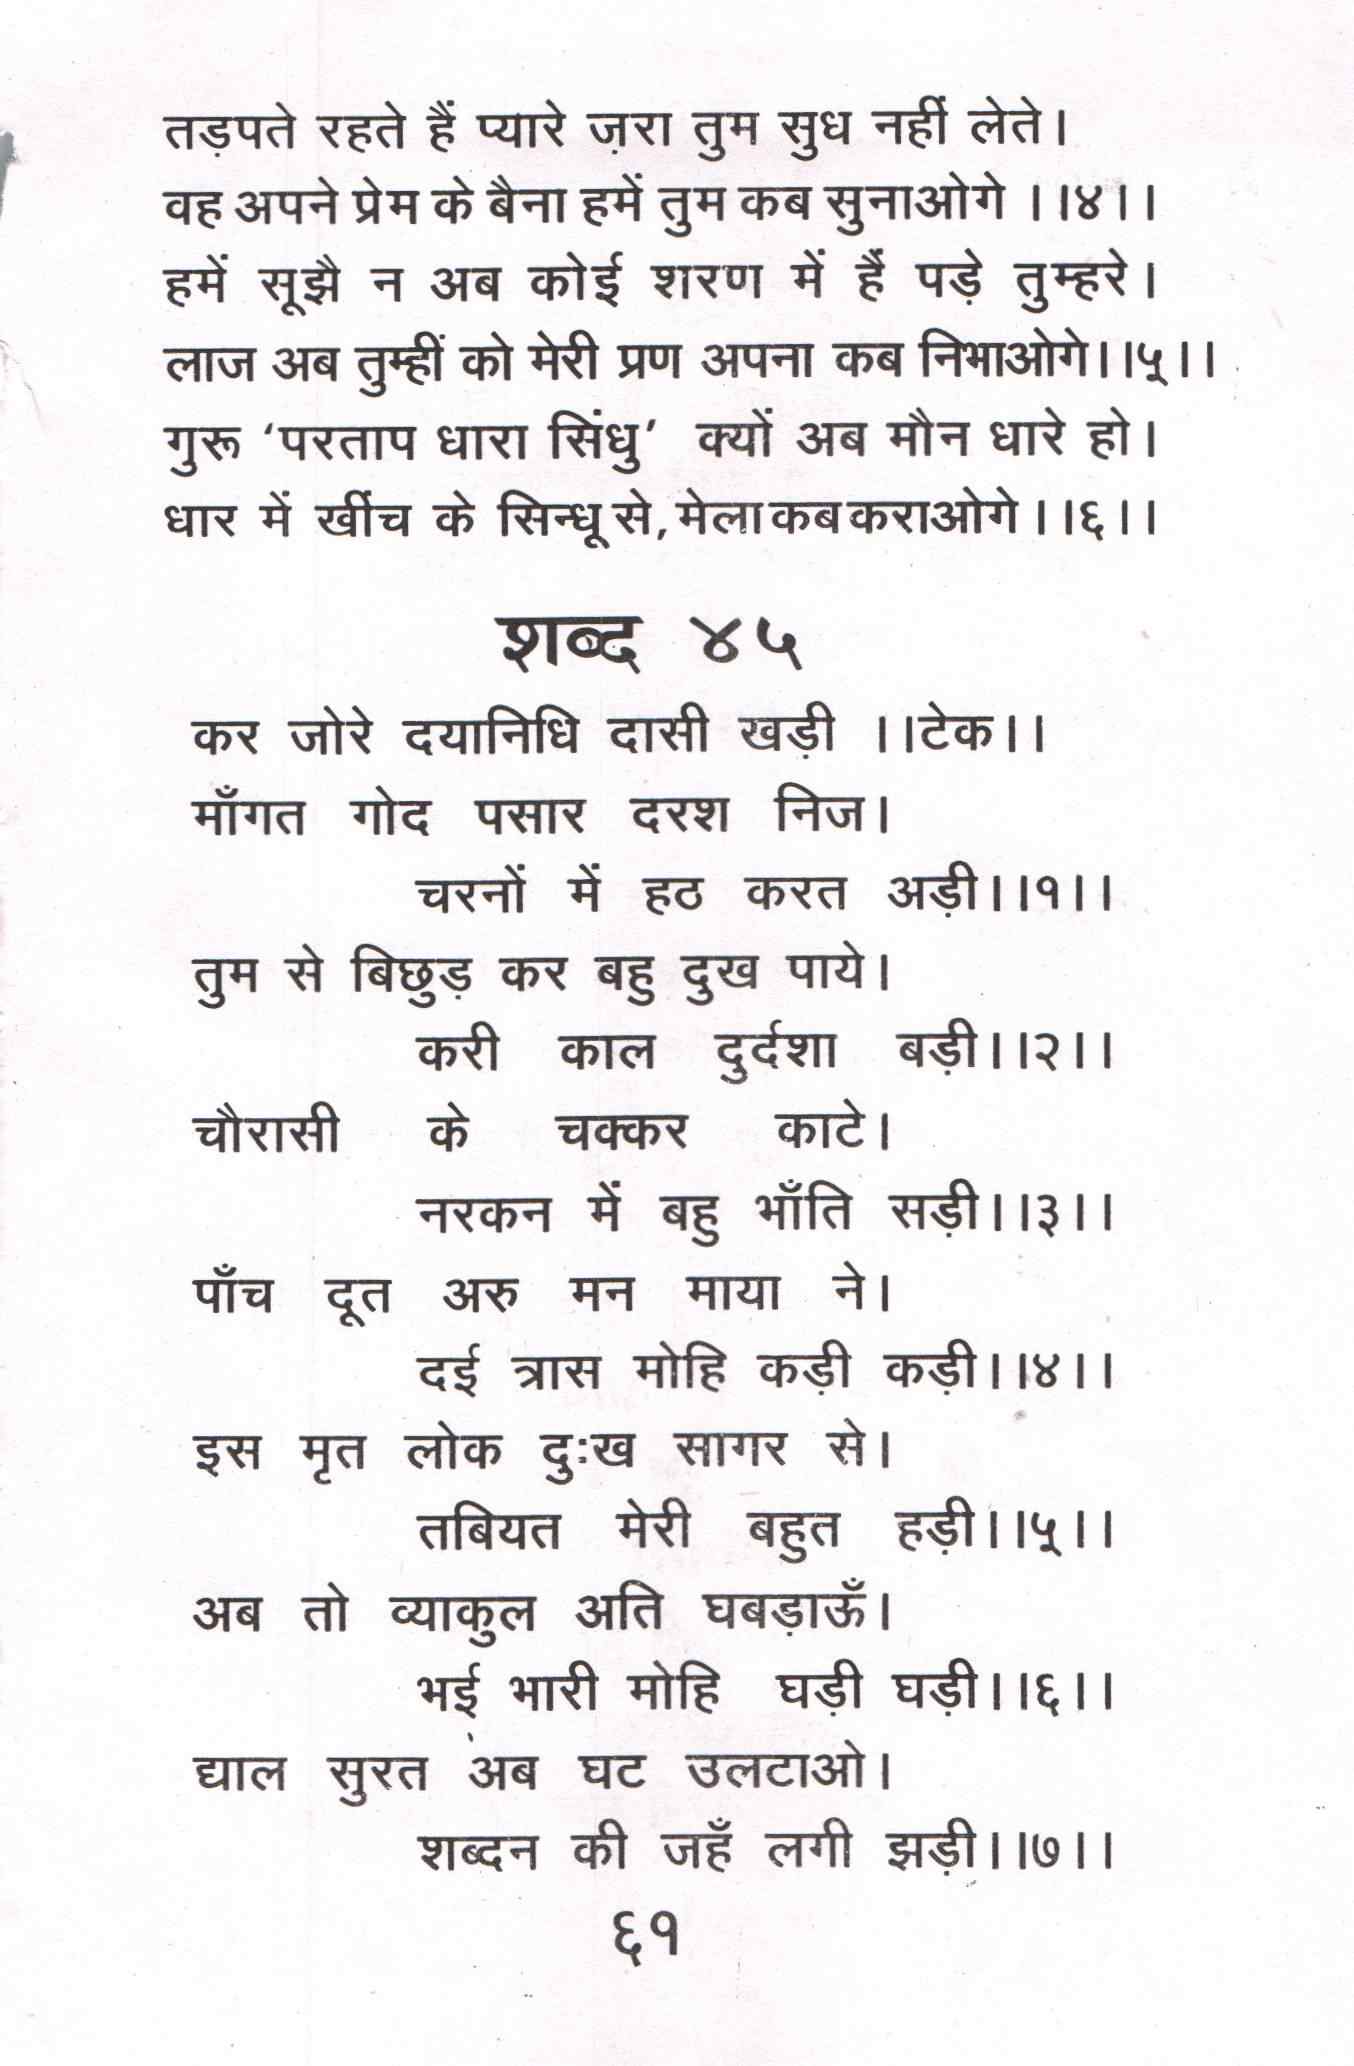 तड़पते रहते हैं प्यारे ज़रा तुम सुध नहीं लेते।
वह अपने प्रेम के बैना हमें तुम कब सुनाओगे ।।४।।
हमें सूझै न अब कोई शरण में हैं पड़े तुम्हरे।
लाज अब तुम्हीं को मेरी प्रण अपना कब निभाओगे।।५।।
गुरू ‘परताप धारा सिंधु’ क्यों अब मौन धारे हो।
धार में खींच के सिन्धू से, मेला कब कराओगे।।६।।
शब्द ४५
कर जोरे दयानिधि दासी खड़ी ।।टेक।।
माँगत गोद पसार दरश निज।
चरनों में हठ करत अड़ी।।१।।
तुम से बिछुड़ कर बहु दुख पाये।
करी काल दुर्दशा बड़ी।।२।।
चौरासी के चक्कर काटे।
नरकन में बहु भाँति सड़ी।।३।।
पाँच दूत अरु मन माया ने।
दई त्रास मोहि कड़ी कड़ी।।४।।
इस मृत लोक दुःख सागर से।
तबियत मेरी बहुत हड़ी।।५।।
अब तो व्याकुल अति घबड़ाऊँ।
भई भारी मोहि घड़ी घड़ी।।६।।
द्याल सुरत अब घट उलटाओ।
शब्दन की जहँ लगी झड़ी।।७।।
६१